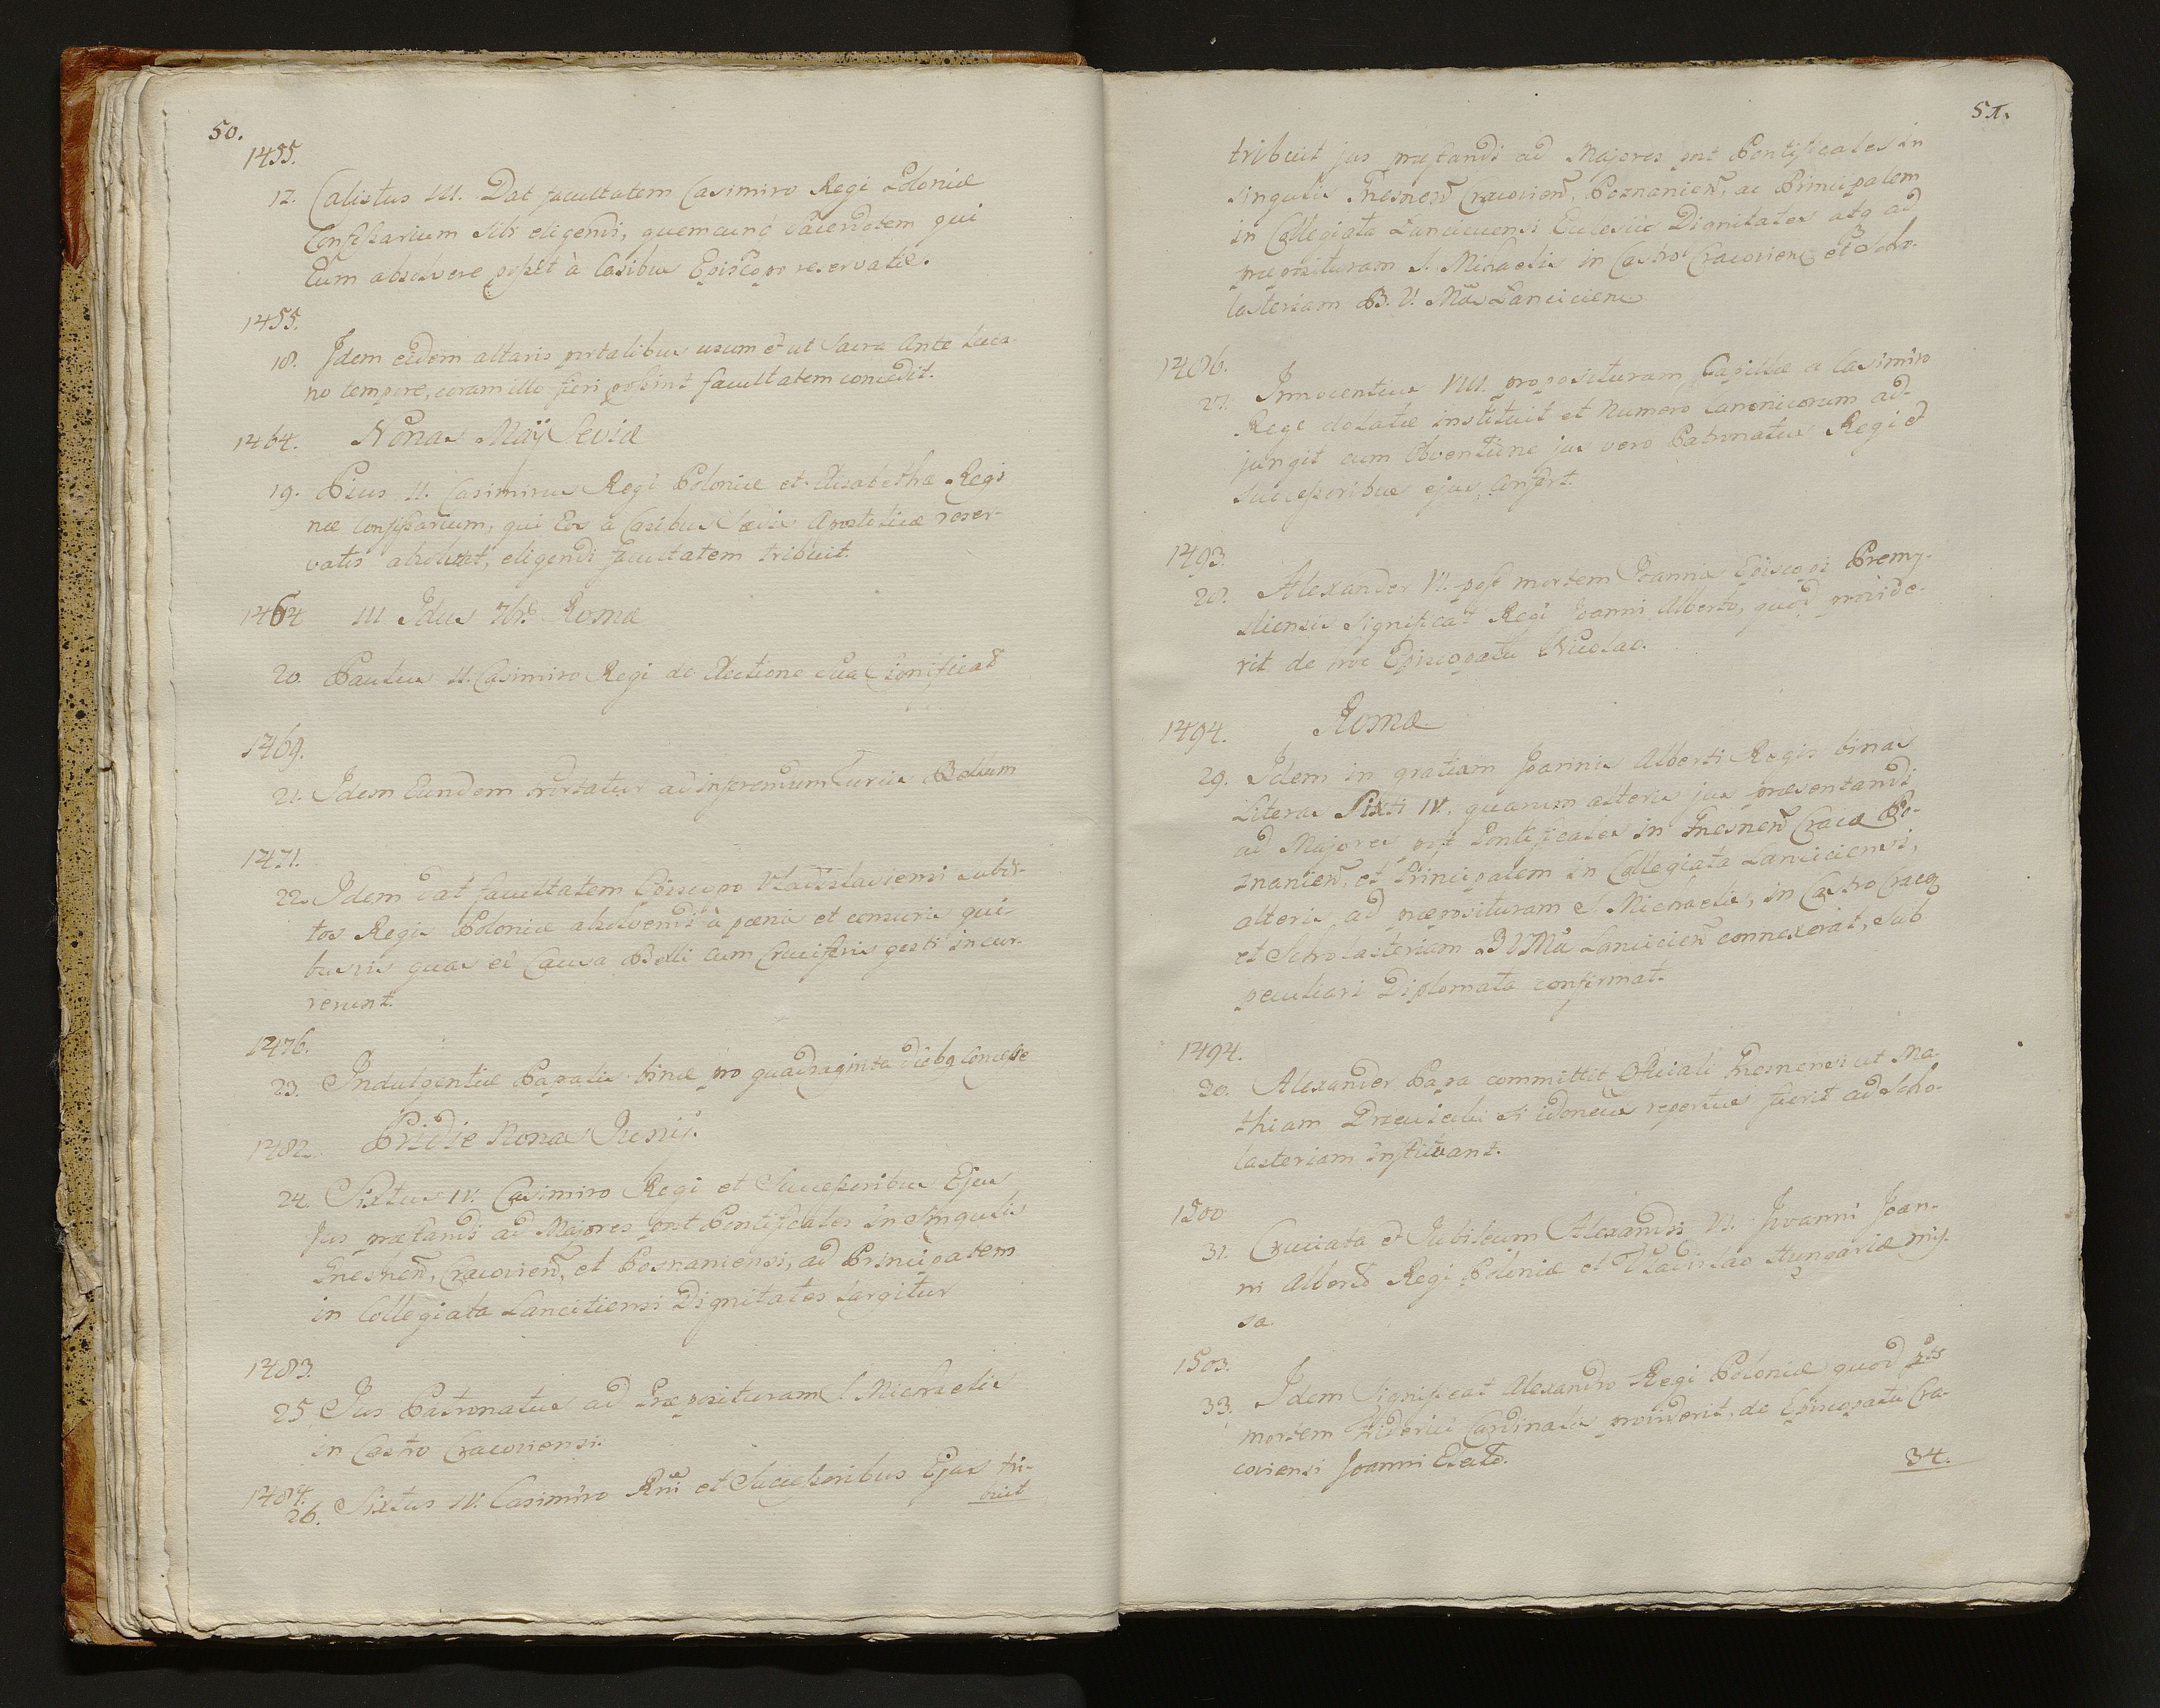 50.
1455.
17. Calistus III. Dat facultatem Casimiro Regi Poloniæ
Confeßarium sibi eligendi, quemcunq́ Sacerdotem qui
Eum absolvere poßit à Casibus Episcopo reservatis.
1455.
18. Idem eidem altaris portatilibus usum et ut Sacra Ante Luca-
no tempore, coram illo fieri poßint facultatem concedit.
1464. Nonas Maÿ Seviæ
19. Pius II. Casimirus Regi Poloniæ et Elisabethæ Regi
næ Confeßarium, qui Eos à Casibus Sædis Apostolicæ reser-
vatis absolvat, eligendi facultatem tribuit.
1464 III. Idus 7br̃ Romæ
20. Paulus II. Casimiro Regi de Electione sua Significat
1469.
21. Idem Eundem hortatur ad inferendum Turcis Bellum
1471.
22. Idem dat facultatem Episcopo Vladislaviensi subdi-
tos Regis Poloniæ absolvendi à pænis et censuris qui-
bus iis quas ex Causa Belli cum Cruciferis gesti incur-
rerunt.
1476.
23. Indulgentiæ Papalis binæ pro quadraginta dieb9 Conceße
1482. Pridie Nonas Junii.
24. Sixtus IV. Casimiro Regi et Succeßoribus Ejus
Jus præstandi ad Majores post Pontificales in Singulis
Gnesnen̄, Cracovien̄, et Posnaniensi, ad Principatem
in Collegiata Lancitiensi Dignitates Largitur
1483.
25. Jus Patronatus ad Præposituram S Michaelis
in Castro Cracoviensi.
1484.
26. Sixtus IV. Casimiro et Succeßoribus Ejus tri-
buit
51.
tribuit jus præstandi ad Majores post Pontificales in
singulis Gnesnen̄ Cracovien̄, Poznanien̄, ac Principalem
in Collegiata Lanciciensi Ecclesiis Dignitates atq ad
præposituram S. Michaelis in Castro Cracovien et Scho-
lasteriam B. V. Lancicien
1486.
27. Innocentius VIII. proposituram Capellæ a Casimiro
Rege dotatæ instituit et Numero Canonicorum ad-
jungit cum Obventione jus vero Patronatus Regi et
Succeßoribus ejus Confert.
1493.
28. Alexander VI. post mortem Joannis Episcopi Premy-
sliensis Significat Regi Joanni Alberto, quod provide-
rit de hoc Episcopatu Nicolao.
1494. Romæ
29. Idem in gratiam Joannis Alberti Regis binas
Literas Sixti IV. quarum alteris jus præsentandi
ad Majores post Pontificales in Gnesnen̄ Crac Po-
znanien̄, et Principalem in Collegiata Lanciciensi,
alteris ad præposituram S. Michaelis, in Castro Crac
et Scholasteriam B V Lancicien̄ connexerat, sub
peculiari Diplomata confirmat.
1494.
30. Alexander Papa committit Officiali Gnesnensi ut Ma-
thiam si idoneus repertus fuerit ad Scho-
lasteriam instituant.
1500
31. Cruciata et Jubileum Alexandri VI. Joanni Joan-
ni Alberto Regi Poloniæ et Vladislao Hungariæ miß-
sa.
1503.
33. Idem Significat Alexandro Regi Poloniæ quod post
mortem Friderici Cardinalis providerit, de Episcopatu Cra-
coviensi Joanni Electo.
34.